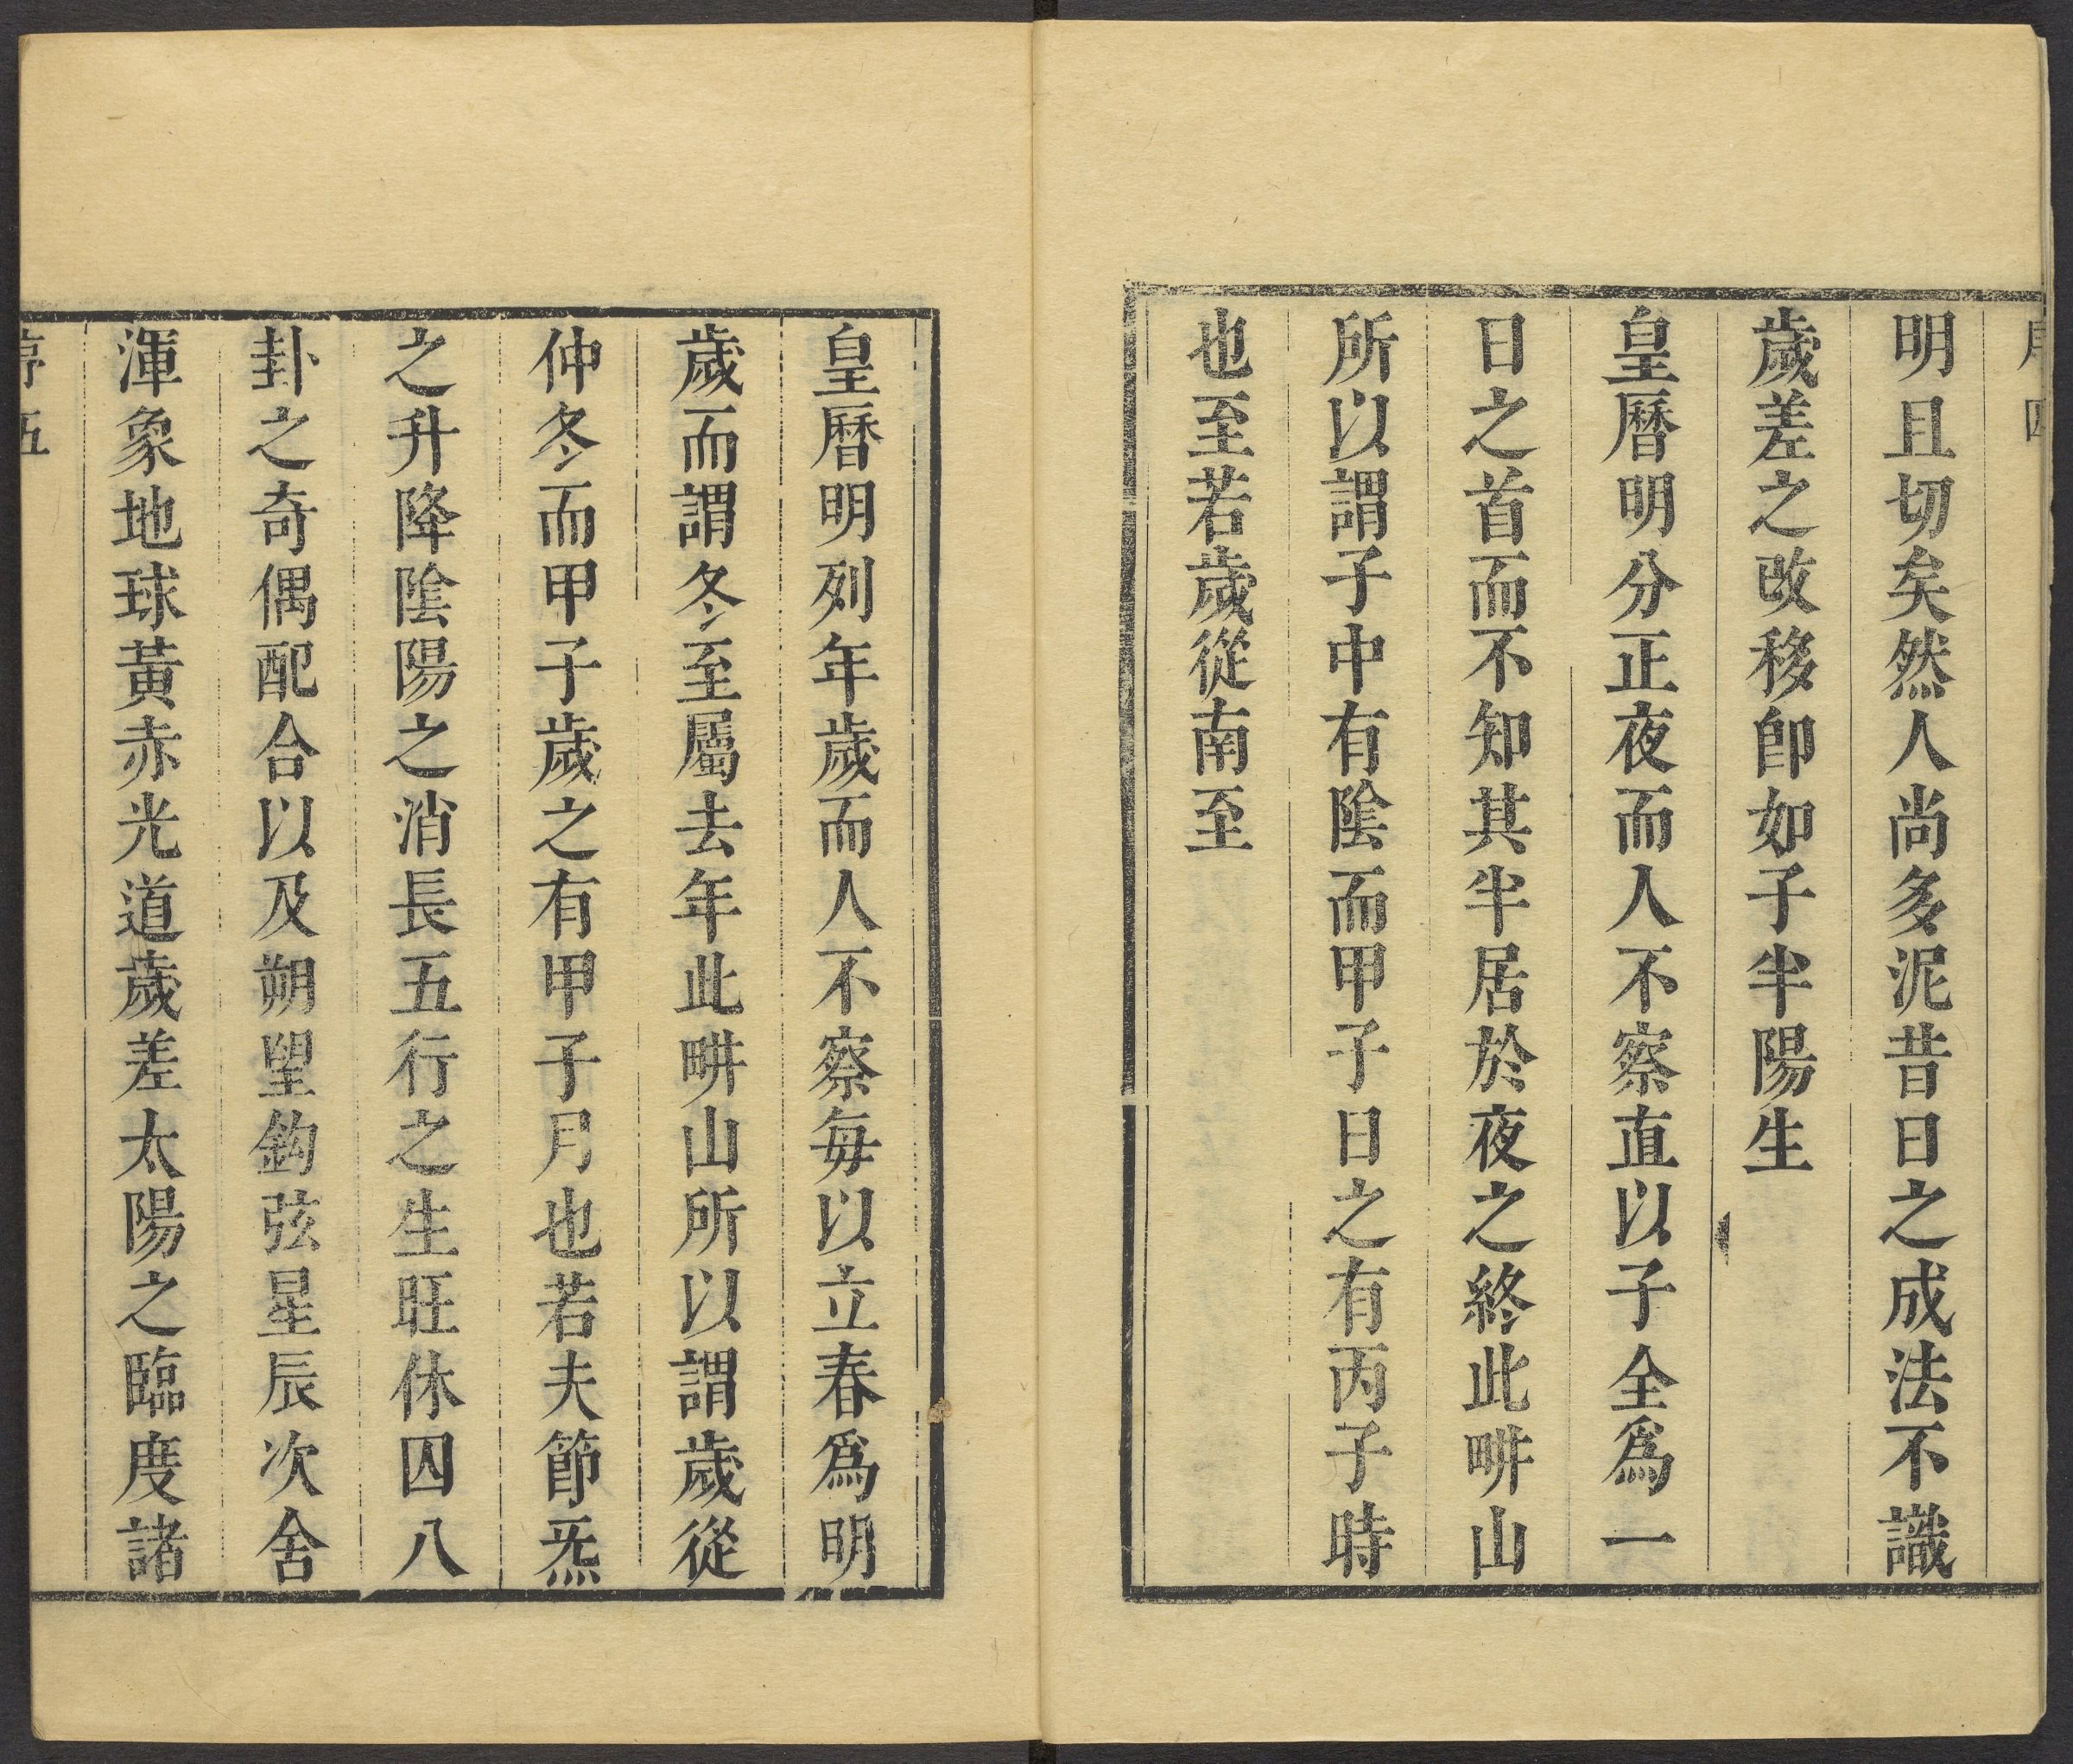 明且切矣然人尚多泥昔日之成法不識
歲差之改移卽如子半陽生
皇曆明分正夜而人不察直以子全爲一
日之首而不知其半居於夜之終此畊山
所以謂子中有陰而甲子日之有丙子時
也至若歲從南至
皇曆明列年歲而人不察每以立春爲明
歲而謂冬至屬去年此畊山所以謂歲從
仲冬而甲子歲之有甲子月也若夫節炁
之升降陰陽之消長五行之生旺休囚八
卦之奇偶配合以及朔望鈎弦星辰次舍
渾象地球黃赤光道歲差太陽之臨度諸
序五